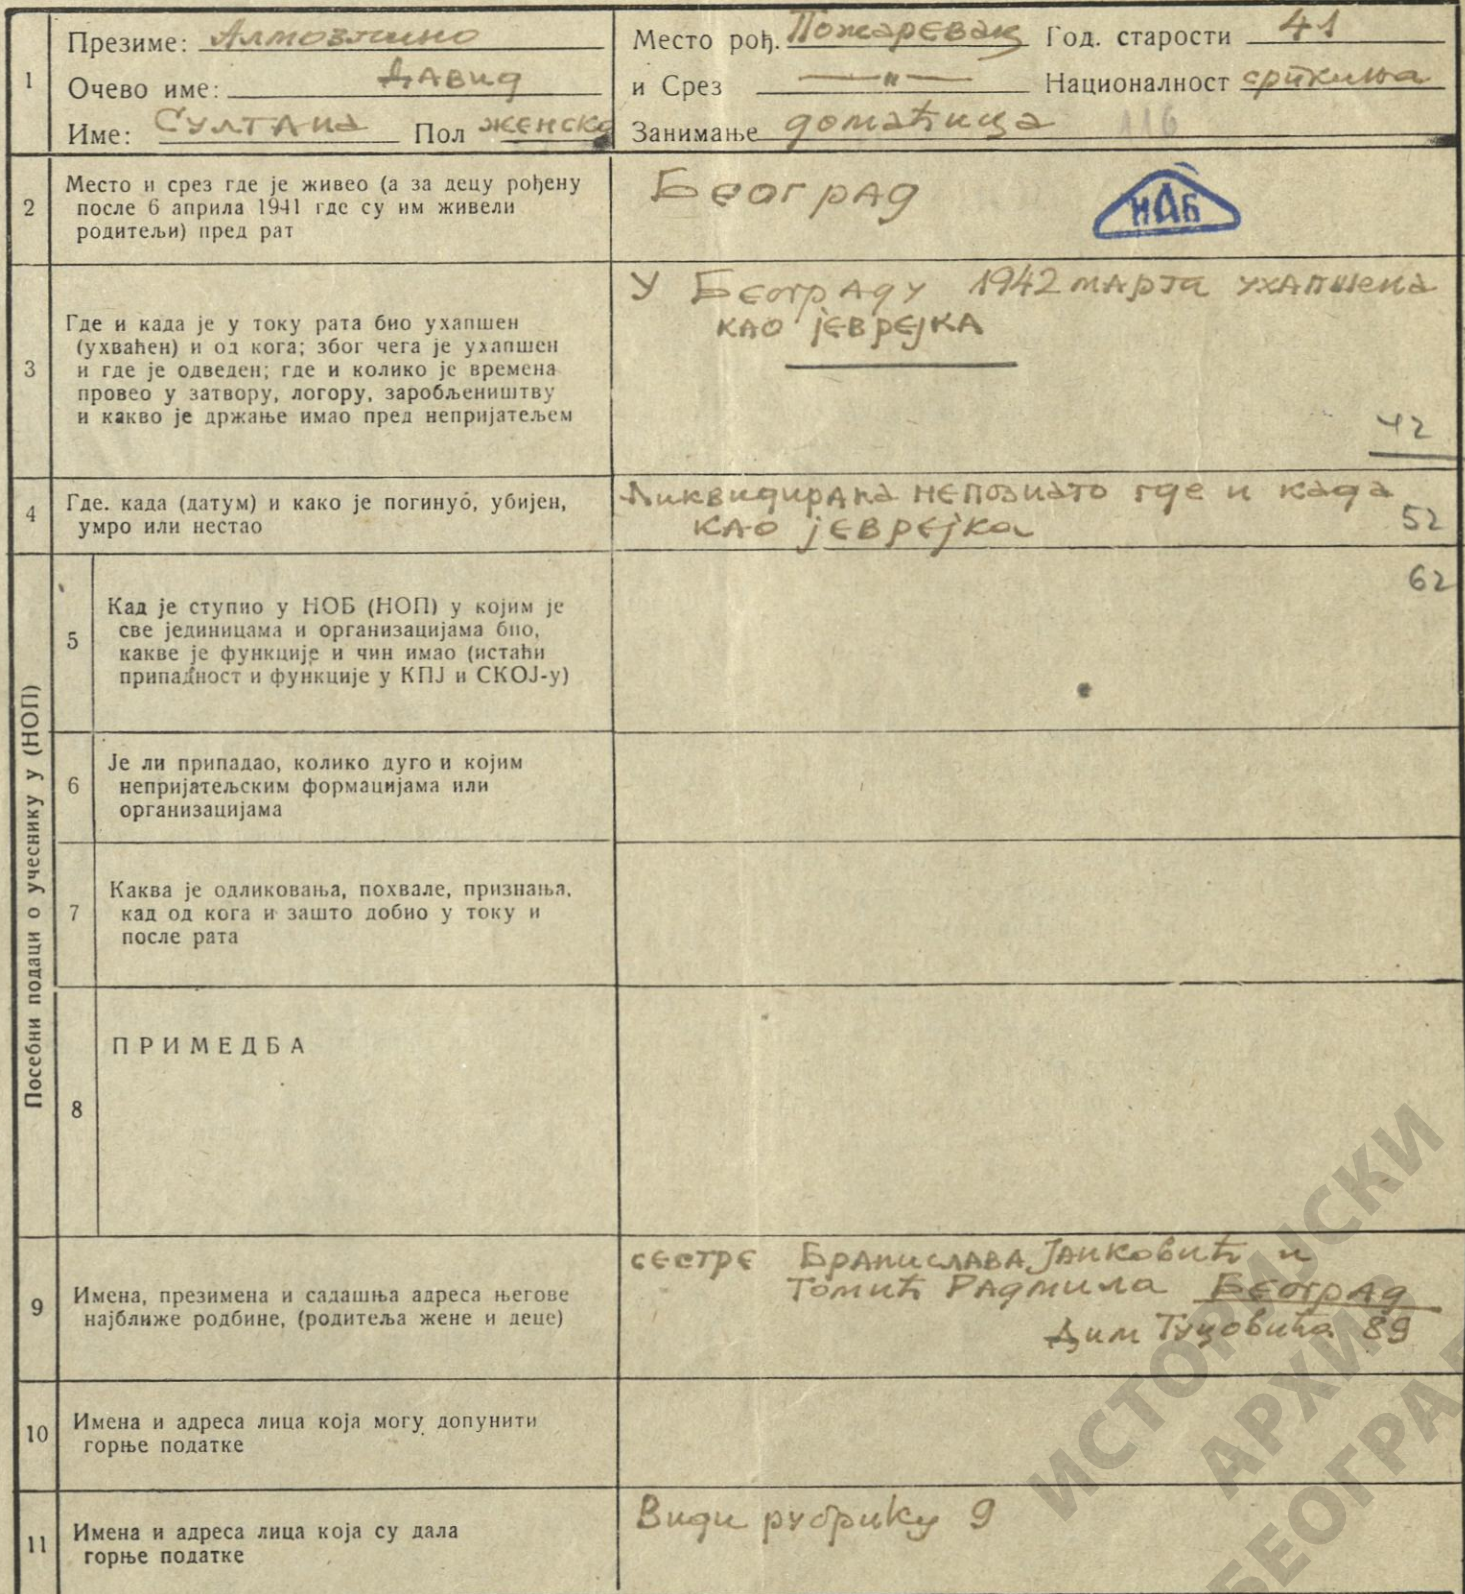 1
Презиме: Алмозлино
Очево име: Давид
Име: Султана Пол женско
Место рођ. Пожаревац Год. старости 41
и Срез —"— Националност српкиња
Занимање домаћица 116
2
Место и срез где је живео (а за децу рођену
после 6 априла 1941 где су им живели
родитељи) пред рат
Београд
НАБ
3
Где и када је у току рата био ухапшен
(ухваћен) и од кога; због чега је ухапшен
и где је одведен; где и колико је времена
провео у затвору, логору, заробљеништву
и какво је држање имао пред непријатељем
У Београду 1942 марта ухапшена
као јеврејка
42
4
Где. када (датум) и како је погинуо, убијен,
умро или нестао
Ликвидирана непознато где и када
као јеврејка 52
Посебни подаци о учеснику у (НОП)
5
Кад је ступио у НОБ (НОП) у којим је
све јединицама и организацијама био,
какве је функције и чин имао (истаћи
припадност и функције у КПЈ и СКОЈ-у)
62
6
Је ли припадао, колико дуго и којим
непријатељским формацијама или
организацијама
7
Каква је одликовања, похвале, признања,
кад од кога и зашто добио у току и
после рата
8
ПРИМЕДБА
9
Имена, презимена и садашња адреса његове
најближе родбине, (родитеља жене и деце)
сестре Бранислава Јанковић и
Томић Радмила Београд
Дим Туцовића 89
10
Имена и адреса лица која могу допунити
горње податке
11
Имена и адреса лица која су дала
горње податке
Види рубрику 9
ИСТОРИЈСКИ
АРХИВ
БЕОГРА